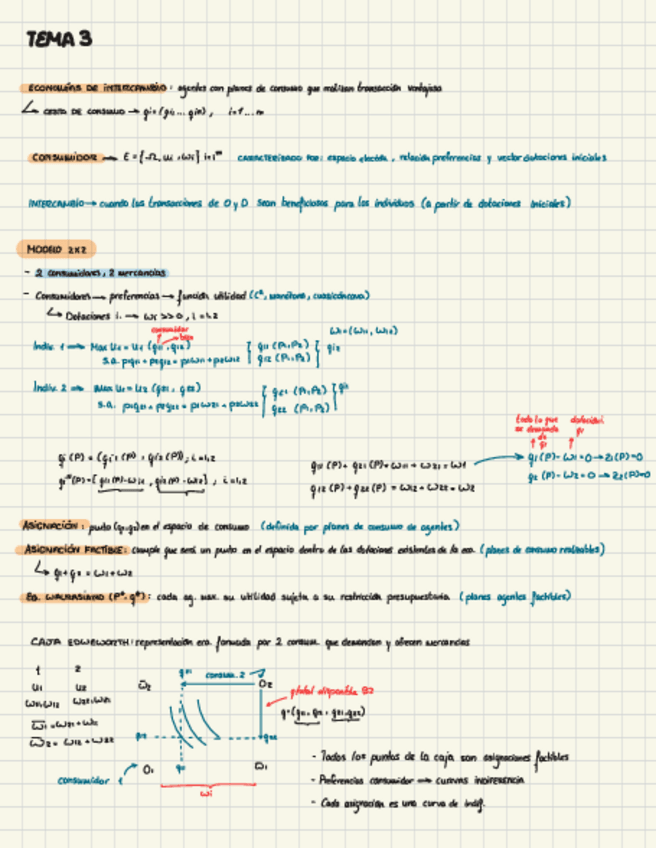 TEMA 3
ECONOMÍAS DE INTERCAMBIO: agentes con planes de consumo que realizan transacción ventajosa
↳ CESTA DE CONSUMO → qi = (qi1 ... qin), i=1...m
CONSUMIDOR → E = {Ω, ui, wi} i=1^m CARACTERIZADO POR: espacio elección, relación preferencias y vector dotaciones iniciales
INTERCAMBIO → cuando las transacciones de O y D sean beneficiosas para los individuos (a partir de dotaciones iniciales)
MODELO 2x2
- 2 consumidores, 2 mercancías
- Consumidores → preferencias → función utilidad (C², monótona, cuasicóncava)
↳ Dotaciones i. → wi >> 0, i=1,2
consumidor
bien
wi = (wi1, wi2)
Indiv. 1 → Max U1 = U1 (q11, q12) { q11 (P1, P2)
s.a. p1q11 + p2q12 = p1w11 + p2w12 q12 (P1, P2) }
Indiv. 2 → Max U2 = U2 (q21, q22) { q21 (P1, P2)
s.a. p1q21 + p2q22 = p1w21 + p2w22 q22 (P1, P2) }
todo lo que se demanda de
qi (P) = (qi1 (P), qi2 (P)), i=1,2
q11 (P) + q21 (P) = w11 + w21 = w1 → q1 (P) - w1 = 0 → z1 (P) = 0
q12 (P) + q22 (P) = w12 + w22 = w2 q2 (P) - w2 = 0 → z2 (P) = 0
ASIGNACIÓN: punto (q1, q2) en el espacio de consumo (definida por planes de consumo de agentes)
ASIGNACIÓN FACTIBLE: cumple que será un punto en el espacio dentro de las dotaciones existentes de la eco. (planes de consumo realizables)
↳ q1 + q2 = w1 + w2
EQ. WALRASIANO (P*, q*): cada ag. max. su utilidad sujeta a su restricción presupuestaria (planes agentes factibles)
CAJA EDGEWORTH: representación eco. formada por 2 consum. que demandan y ofrecen mercancías
1 2
U1 U2
w11, w12 w21, w22
w̄1 = w11 + w21
w̄2 = w12 + w22
consum. 2
O2
total disponible B2
q = (q11, q12, q21, q22)
consumidor 1
O1
w1
- Todos los puntos de la caja son asignaciones factibles
- Preferencias consumidor → curvas indiferencia
- Cada asignación es una curva de indif.